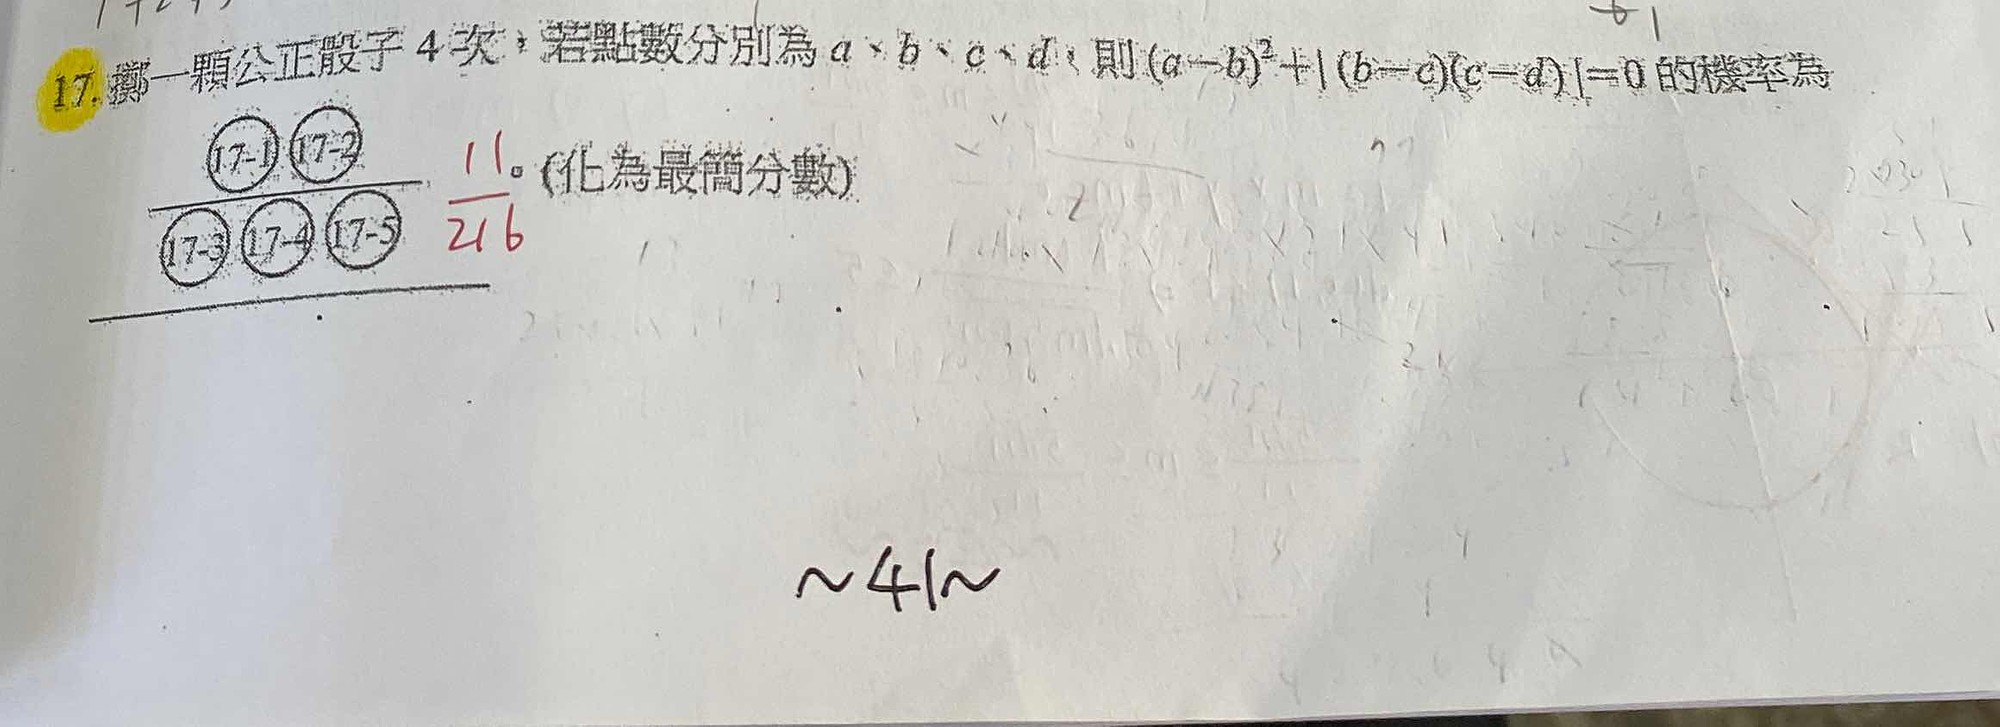 17. 擲一顆公正骰子 4 次，若點數分別為 a、b、c、d，則 (a-b)²+|(b-c)(c-d)|=0 的機率為
17-1 17-2
17-3 17-4 17-5
11
216
。(化為最簡分數)
~41~